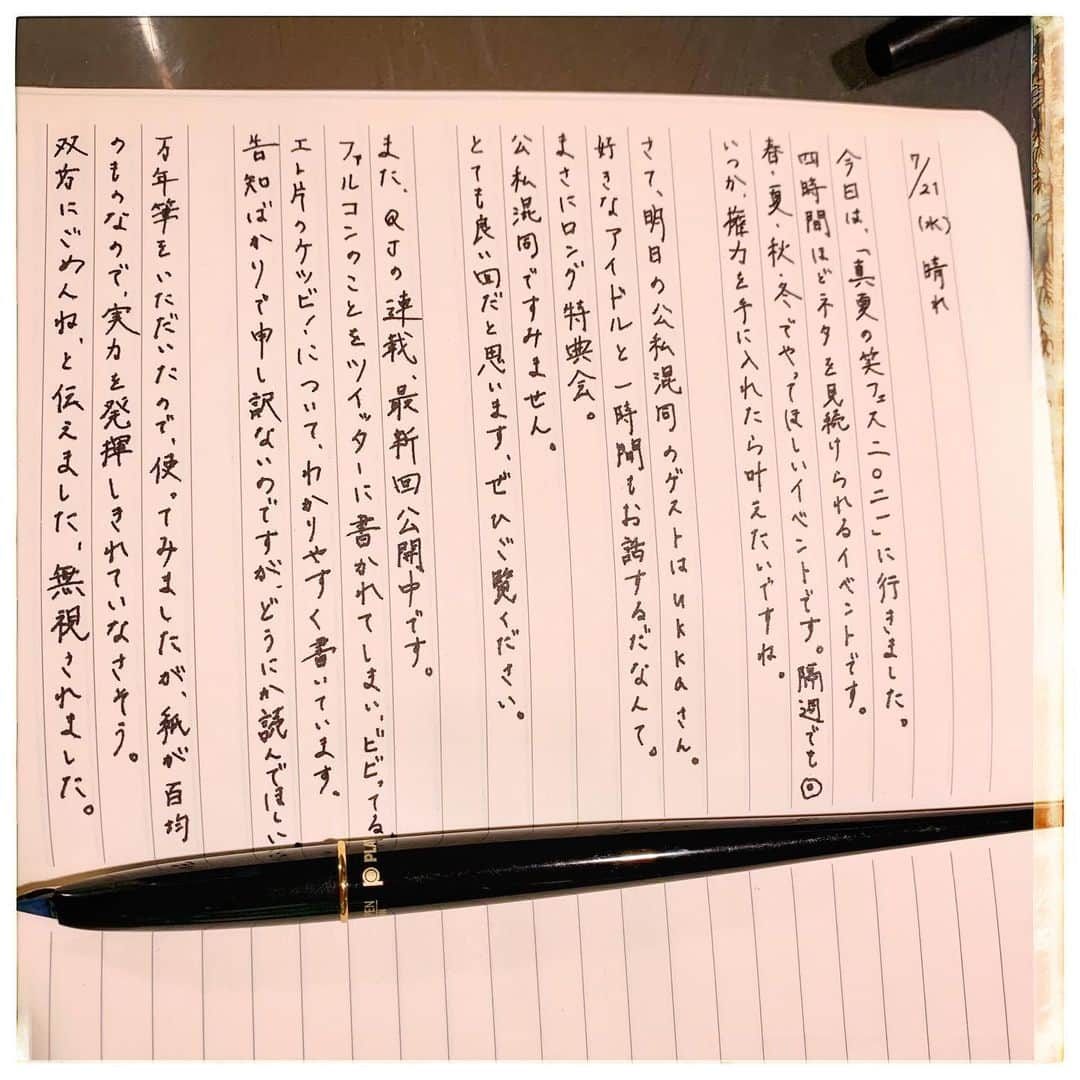 7/21(水) 晴れ
今日は、「真夏の笑フェス二〇二一」に行きました。
四時間ほどネタを見続けられるイベントです。
春・夏・秋・冬でやってほしいイベントです。隔週でも◎
いつか、権力を手に入れたら叶えたいですね。
さて、明日の公私混同のゲストはukkaさん。
好きなアイドルと一時間もお話するだなんて。
まさにロング特典会。
公私混同ですみません。
とても良い回だと思います、ぜひご覧ください。
また、QJの連載、最新回公開中です。
ファルコンのことをツイッターに書かれてしまい、ビビってる、
エト片のケツビ!について、わかりやすく書いています。
告知ばかりで申し訳ないのですが、どうにか読んでほしい
万年筆をいただいたので、使ってみましたが、紙が百均
のものなので、実力を発揮しきれていなさそう。
双方にごめんね、と伝えました、無視されました。
PLA